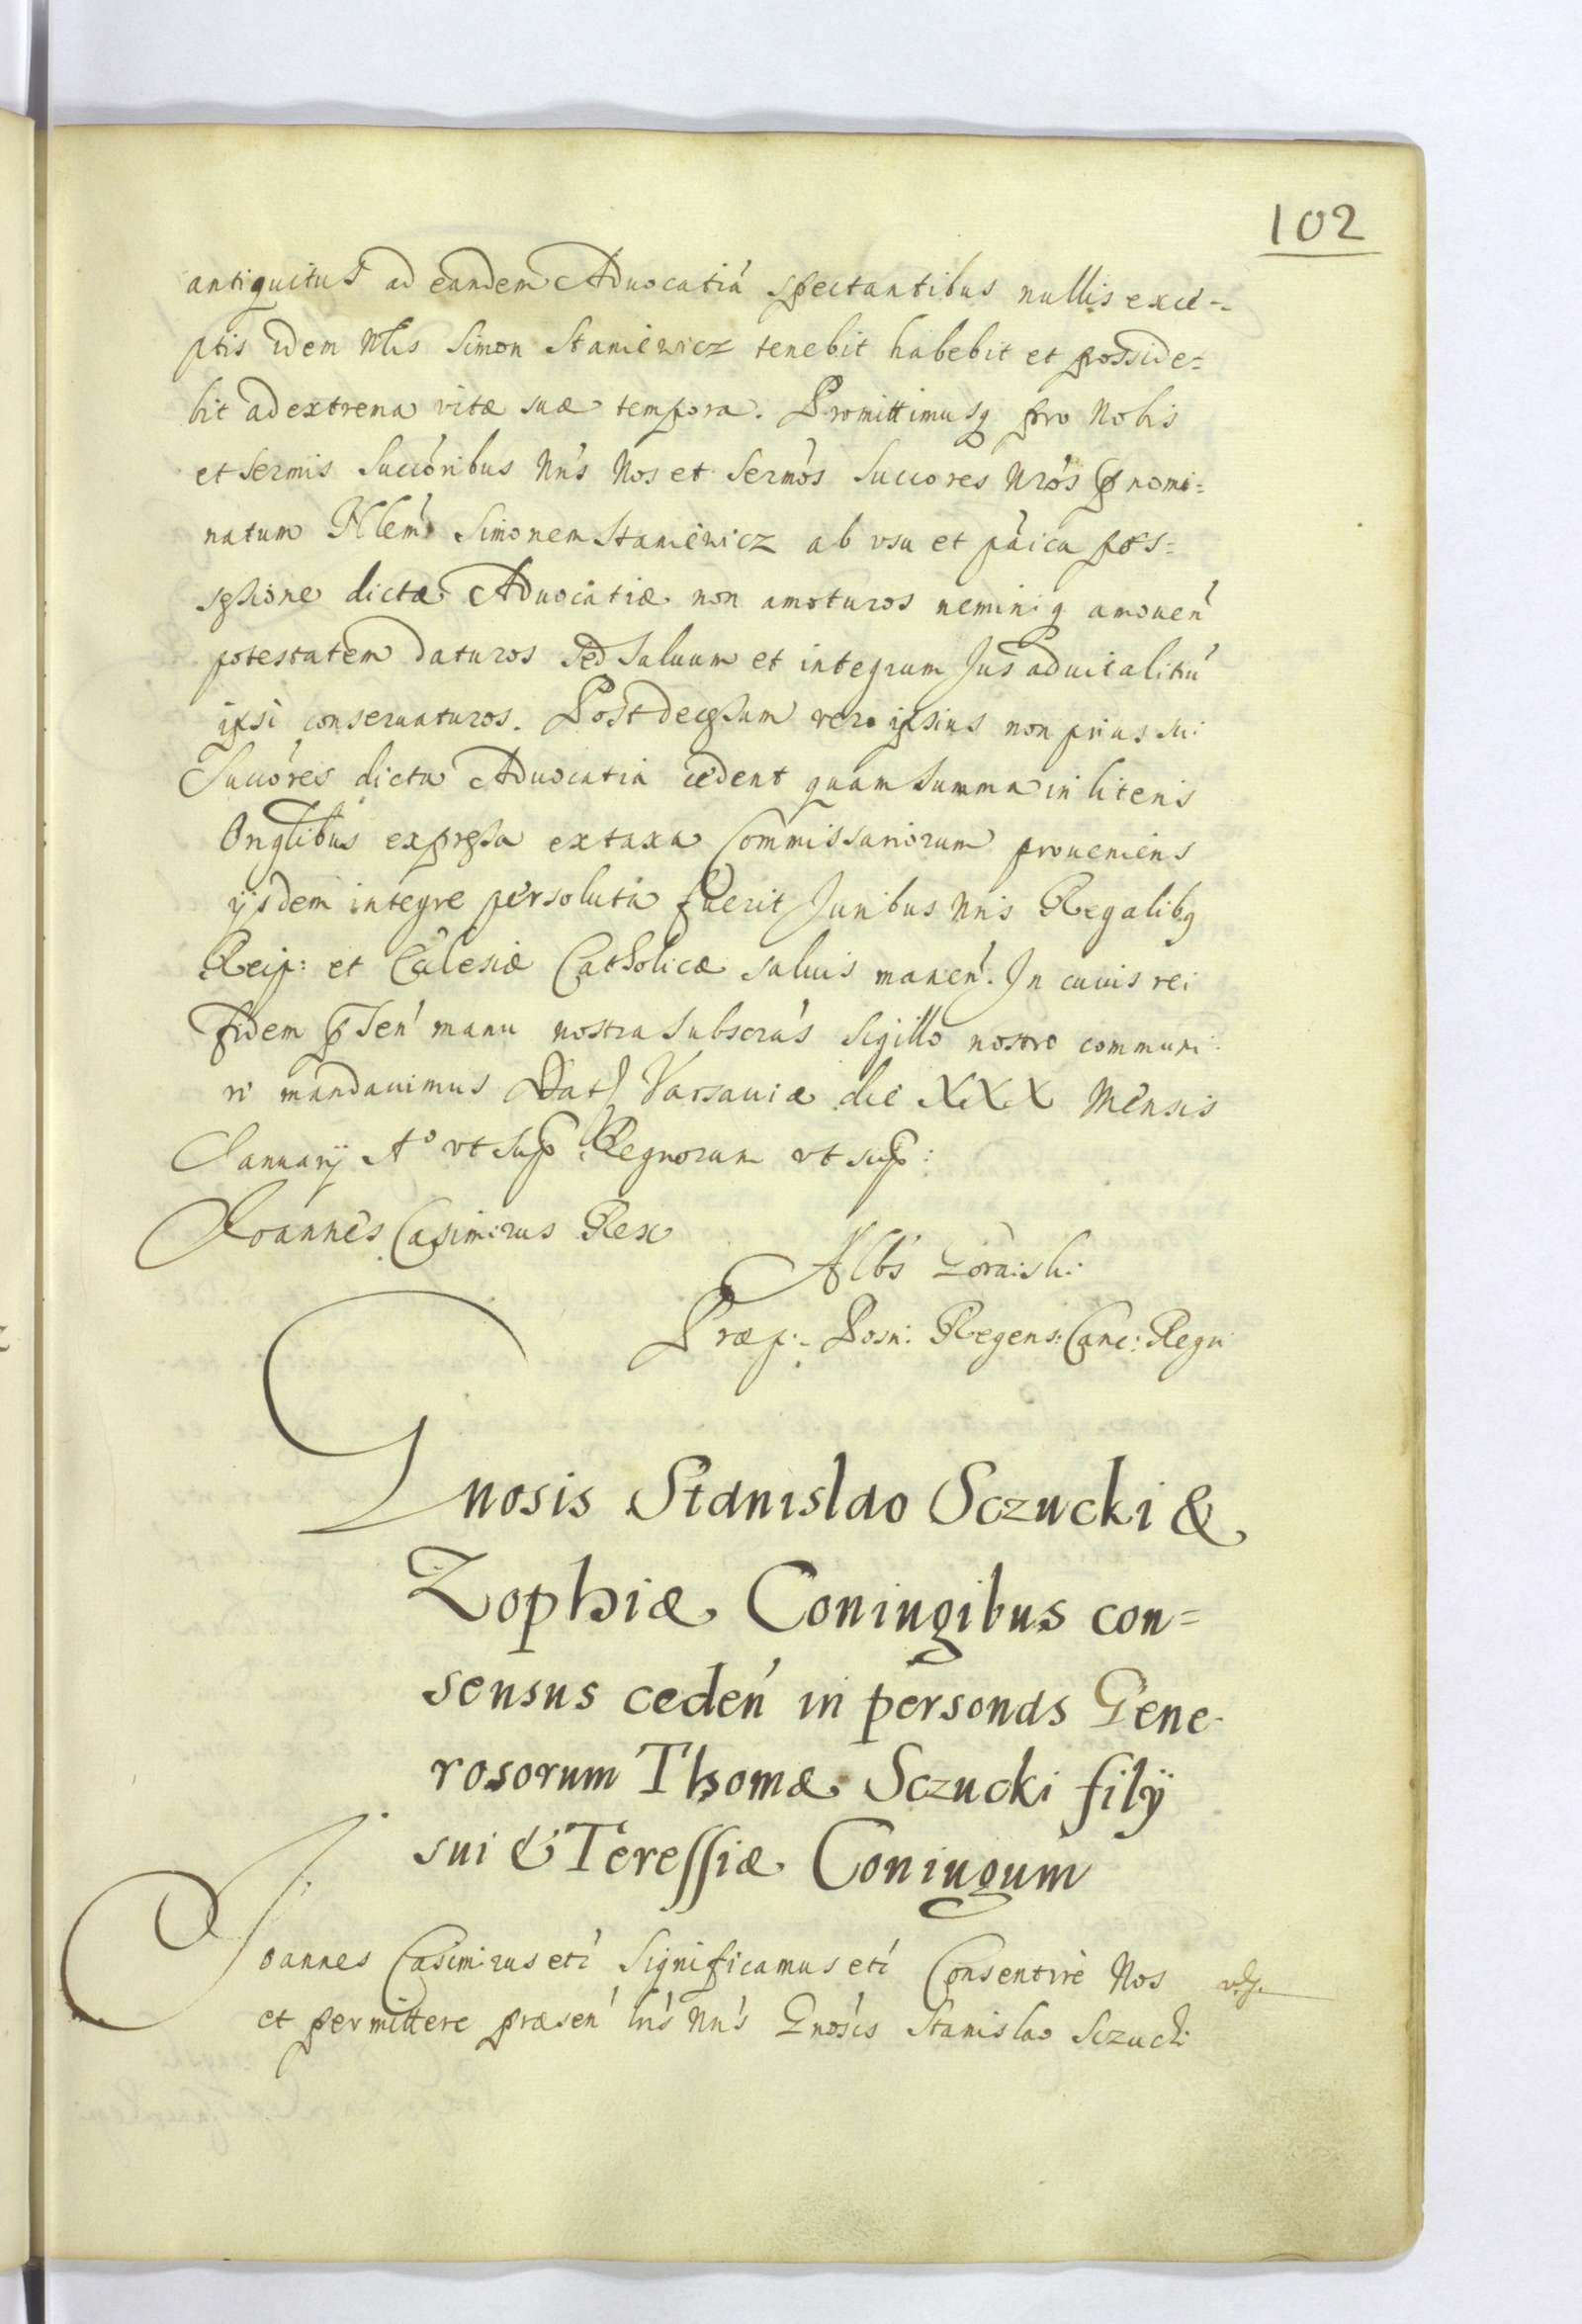 102
antiquitus ad eandem Aduocatiá spectantibus nullis exce-
ptis idem Nlis Simon Staniewicz tenebit habebit et posside=
bit ad extrena vitæ suæ tempora. Promittimusq pro Nobis
et Sermis Succóribus Nrís Nos et Sermós Succores Nrós p nomi=
natum Nlem Simonem Staniewicz ab vsu et páica pos=
sessione dictæ Aduocatiæ non amoturos neminiq amouen'
potestatem daturos sed saluum et integrum Jus aduitalitiu'
ipsi conseruaturos. Post decessum vero ipsius non prius sui
Succóres dicta Aduocatia cedent quam summa in literis
Onglibus expressa ex taxa Commissariorum proueniens
ijsdem integre persoluta fuerit Juribus Nris Regalibq
Reip: et Ecclesiæ Catholicæ saluis manen'. In cuius rei
fidem p sen' manu nostra subscrás Sigillo nostro communi
ri mandauimus Dat Varsauiæ die XXX Mensis
Januarij Aº vt sup Regnorum vt sup:
Joannes Casimirus Rex
Albs Zoraiski
Præp: Posn: Regens: Canc: Regni
Gnosis Stanislao Sczucki &
Zophiæ Coniugibus con=
sensus ceden' in personas Gene-
rosorum Thomæ Sczucki filÿ
sui & Teressiæ Coniugum
Joannes Casimirus etc' Significamus etc' Consentire Nos
et permittere præsen' lrís Nrís Gnósis Stanislao Sczucki